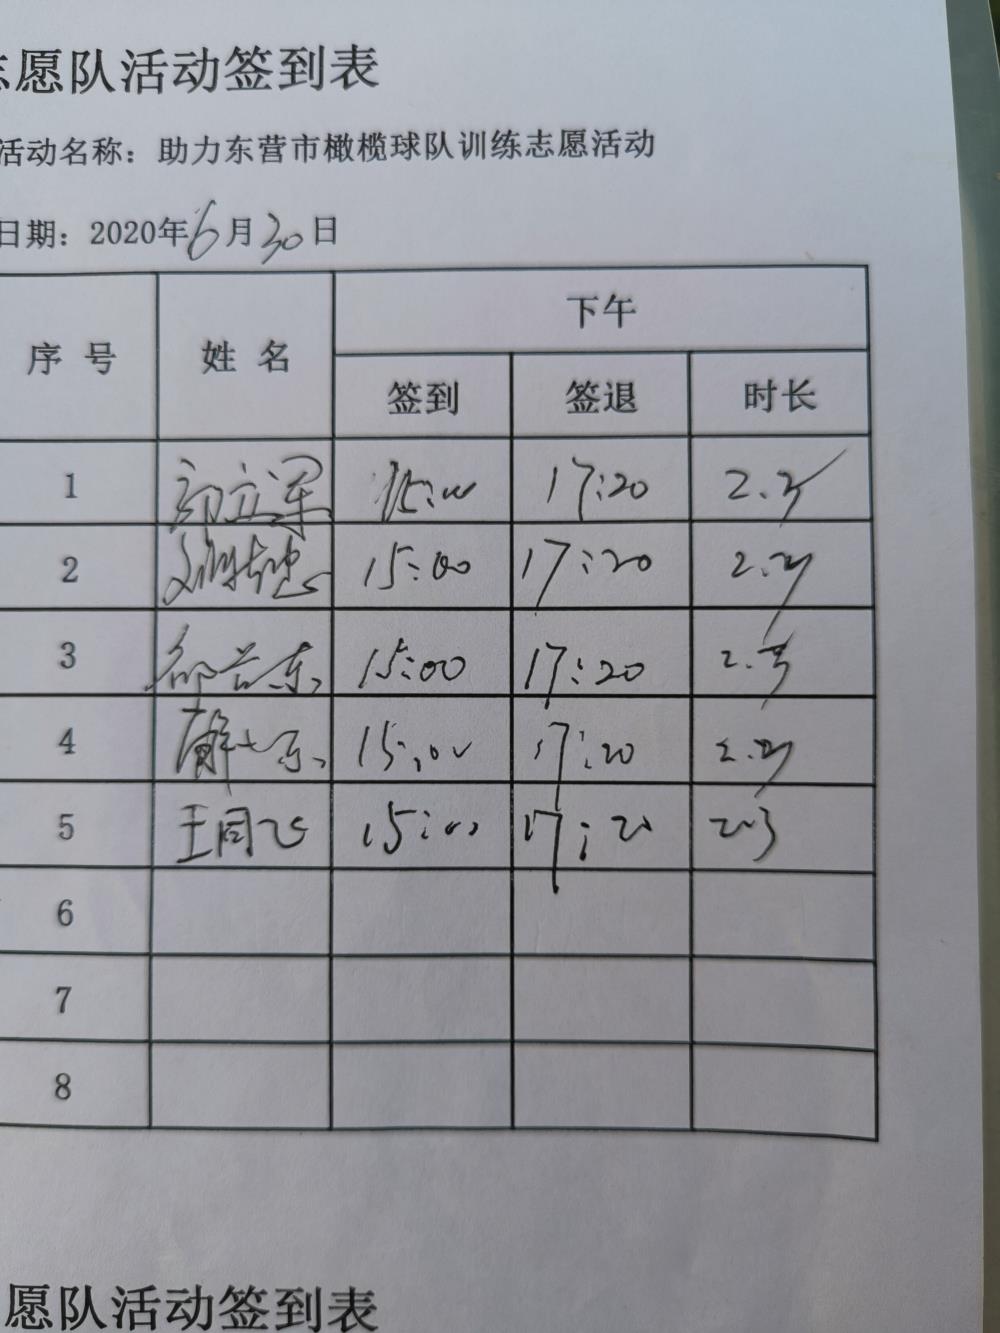 志愿队活动签到表
活动名称：助力东营市橄榄球队训练志愿活动
日期：2020年6月30日
序号 姓名 下午
签到 签退 时长
1 15:00 17:20 2.3
2 15:00 17:20 2.3
3 15:00 17:20 2.3
4 15:00 17:20 2.3
5 王同飞 15:00 17:20 2.3
6
7
8
愿队活动签到表